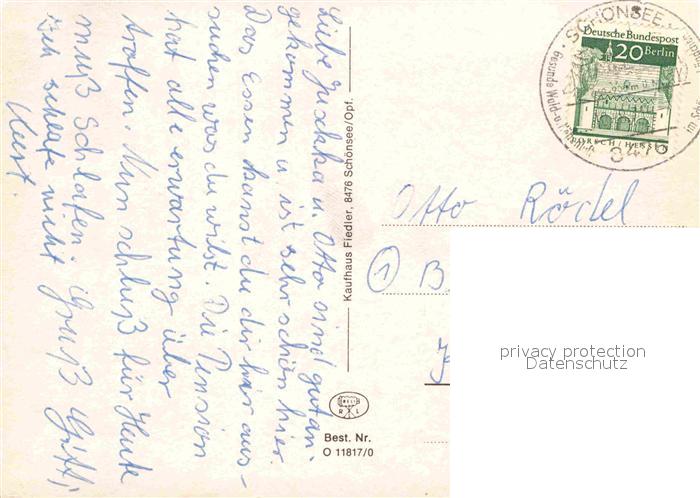 Liebe Juskka u. Otto sind gut an-
gekommen u. ist sehr schön hier.
Das Essen kanst du dir hir aus-
suchen was du wilst. Die Pension
hat alle erwartung über
troffen. Nun schluß für Heute
muß Schlafen. Gruß Gitti,
ich schleute nicht
Kurt.
Kaufhaus Fiedler, 8476 Schönsee/Opf.
R L
Best. Nr.
O 11817/0
SCHÖNSEE
Deutsche Bundespost
20 Berlin
LORSCH/HESSEN
8476
Gesunde Wald-u.
Otto Rödel
1 B
privacy protection
Datenschutz